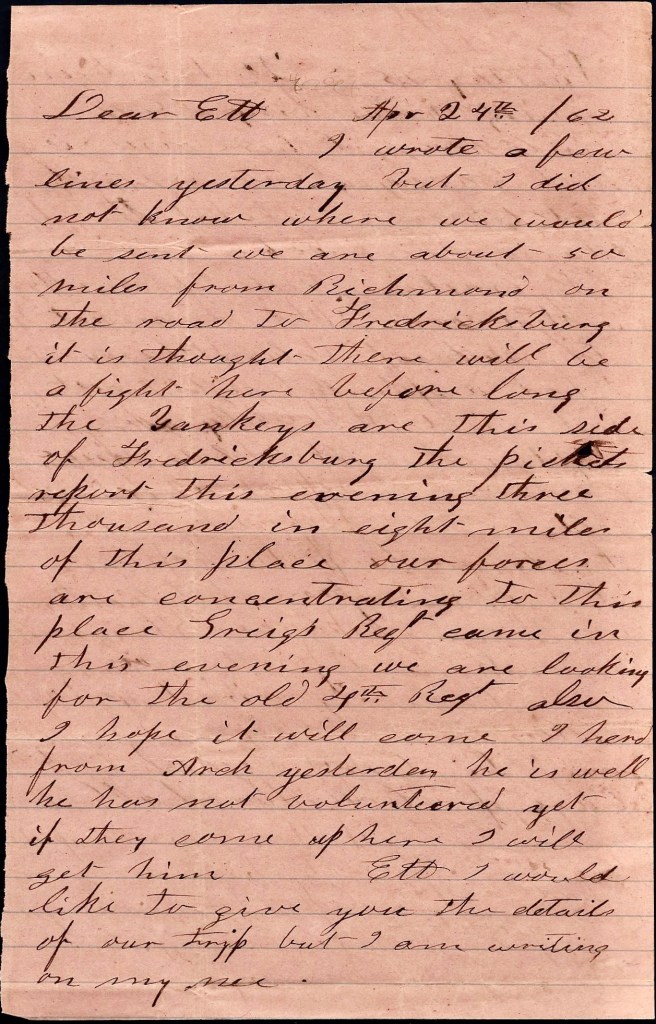 Dear Ett Apr 24th /62
I wrote a few
lines yesterday but I did
not know where we would
be sent we are about 50
miles from Richmond on
the road to Fredricksburg
it is thought there will be
a fight here before long
the Yankeys are this side
of Fredricksburg the pickets
report this evening three
thousand in eight miles
of this place our forces
are concentrating to this
place Greigs Regt came in
this evening we are looking
for the old 4th Regt also
I hope it will come I herd
from Arch yesterday he is well
he has not volunteered yet
if they come up here I will
get him Ett I would
like to give you the details
of our trip but I am writing
on my nee.